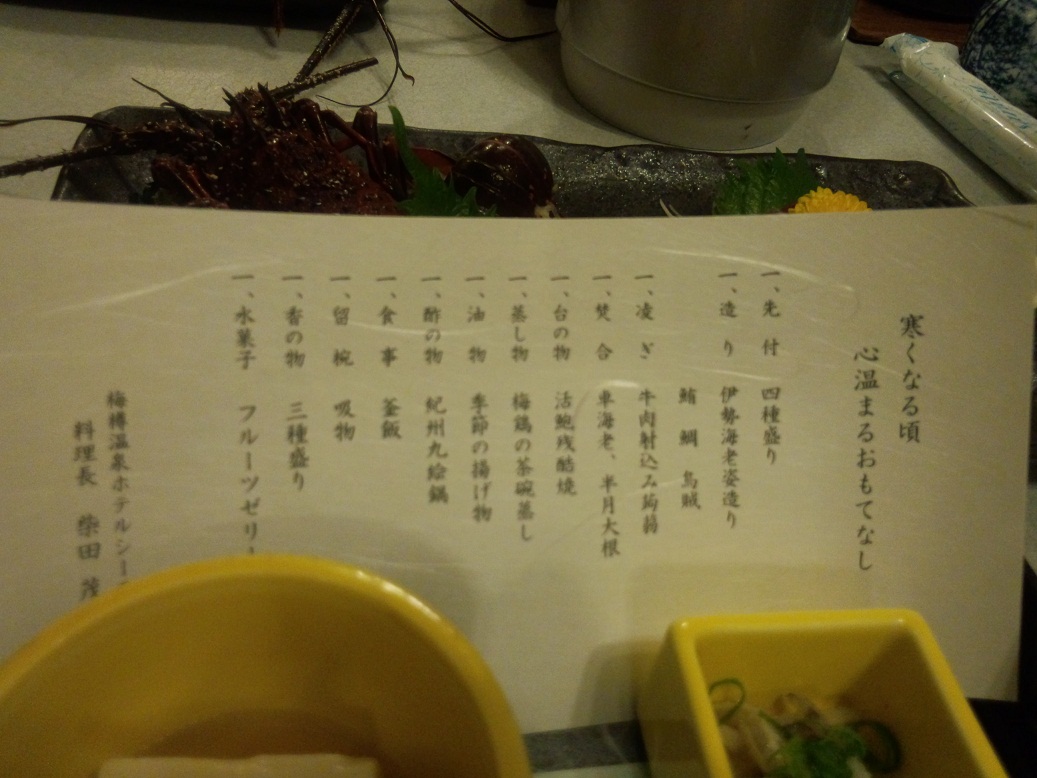 寒くなる頃
心温まるおもてなし
一、先付 四種盛り
一、造り 伊勢海老姿造り
鮪 鯛 烏賊
一、凌ぎ 牛肉射込み蒟蒻
一、焚合 車海老、半月大根
一、台の物 活鮑残酷焼
一、蒸し物 梅鶏の茶碗蒸し
一、油物 季節の揚げ物
一、酢の物 紀州九絵鍋
一、食事 釜飯
一、留椀 吸物
一、香の物 三種盛り
一、水菓子 フルーツゼリー
梅樽温泉ホテルシー
料理長 柴田 茂